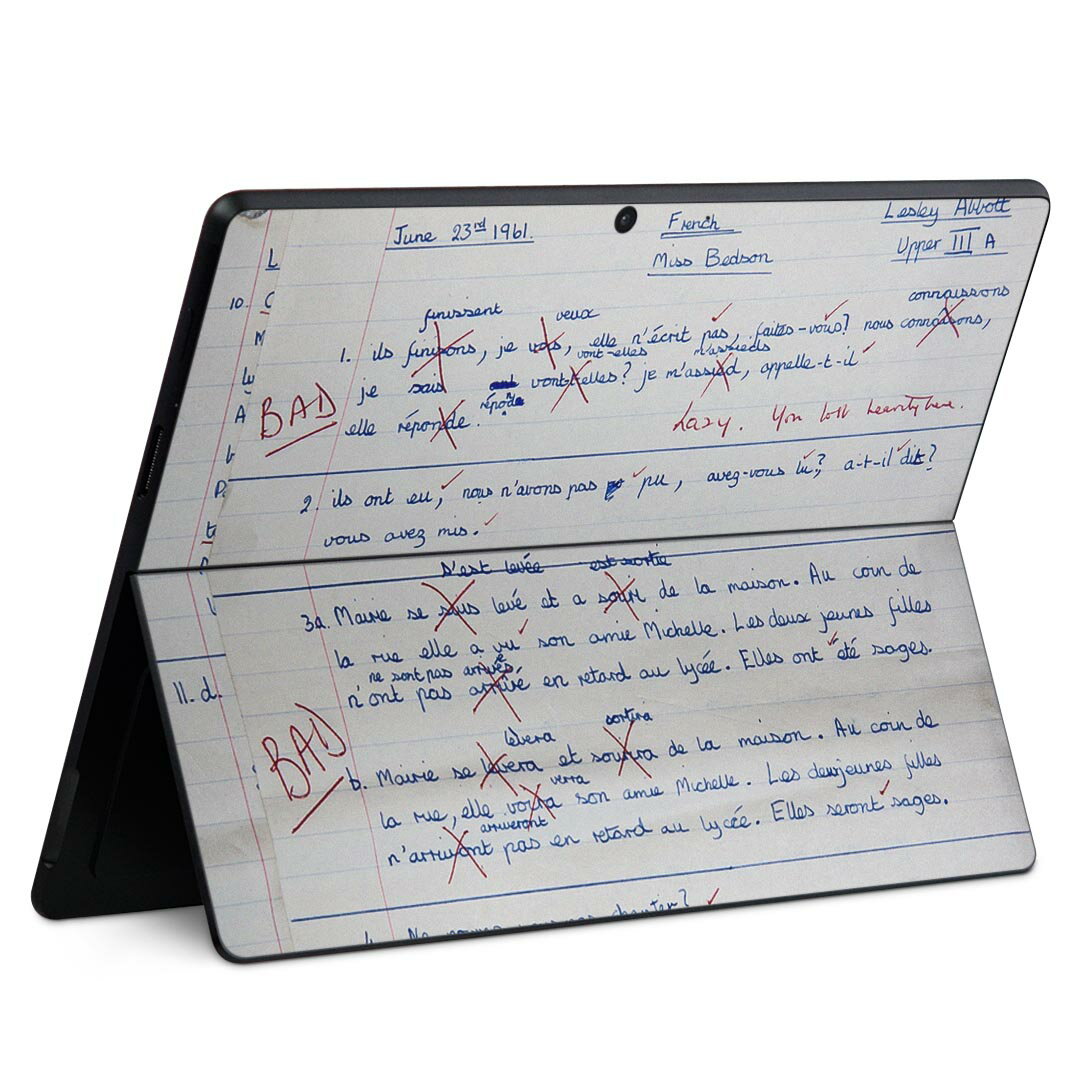 June 23rd 1961. French Lesley Abbott
Miss Bedson Upper III A
L
10. C
M
finissent veux connaissons
1. ils finisons, je, elle n'écrit pas, faites-vous? nous connaisons,
vont-elles m'assieds
A BAD je sais vont-elles? je m'assied, appelle-t-il
elle réponde.
Lazy. You lost here.
2. ils ont eu, nous n'avons pas pu, avez-vous lu? a-t-il dit?
vous avez mis.
s'est levée est sortie
3a. Mairie se levé et a de la maison. Au coin de
la rue elle a vu son amie Michelle. Les deux jeunes filles
ne sont pas arrivés
n'ont pas arrivé en retard au lycée. Elles ont été sages.
11. d.
BAD
lèvera sortira
b. Mairie se levera et de la maison. Au coin de
verra
la rue, elle voira son amie Michelle. Les deux jeunes filles
arriveront
n'arrivont pas en retard au lycée. Elles seront sages.
4. Ne pas chanter?